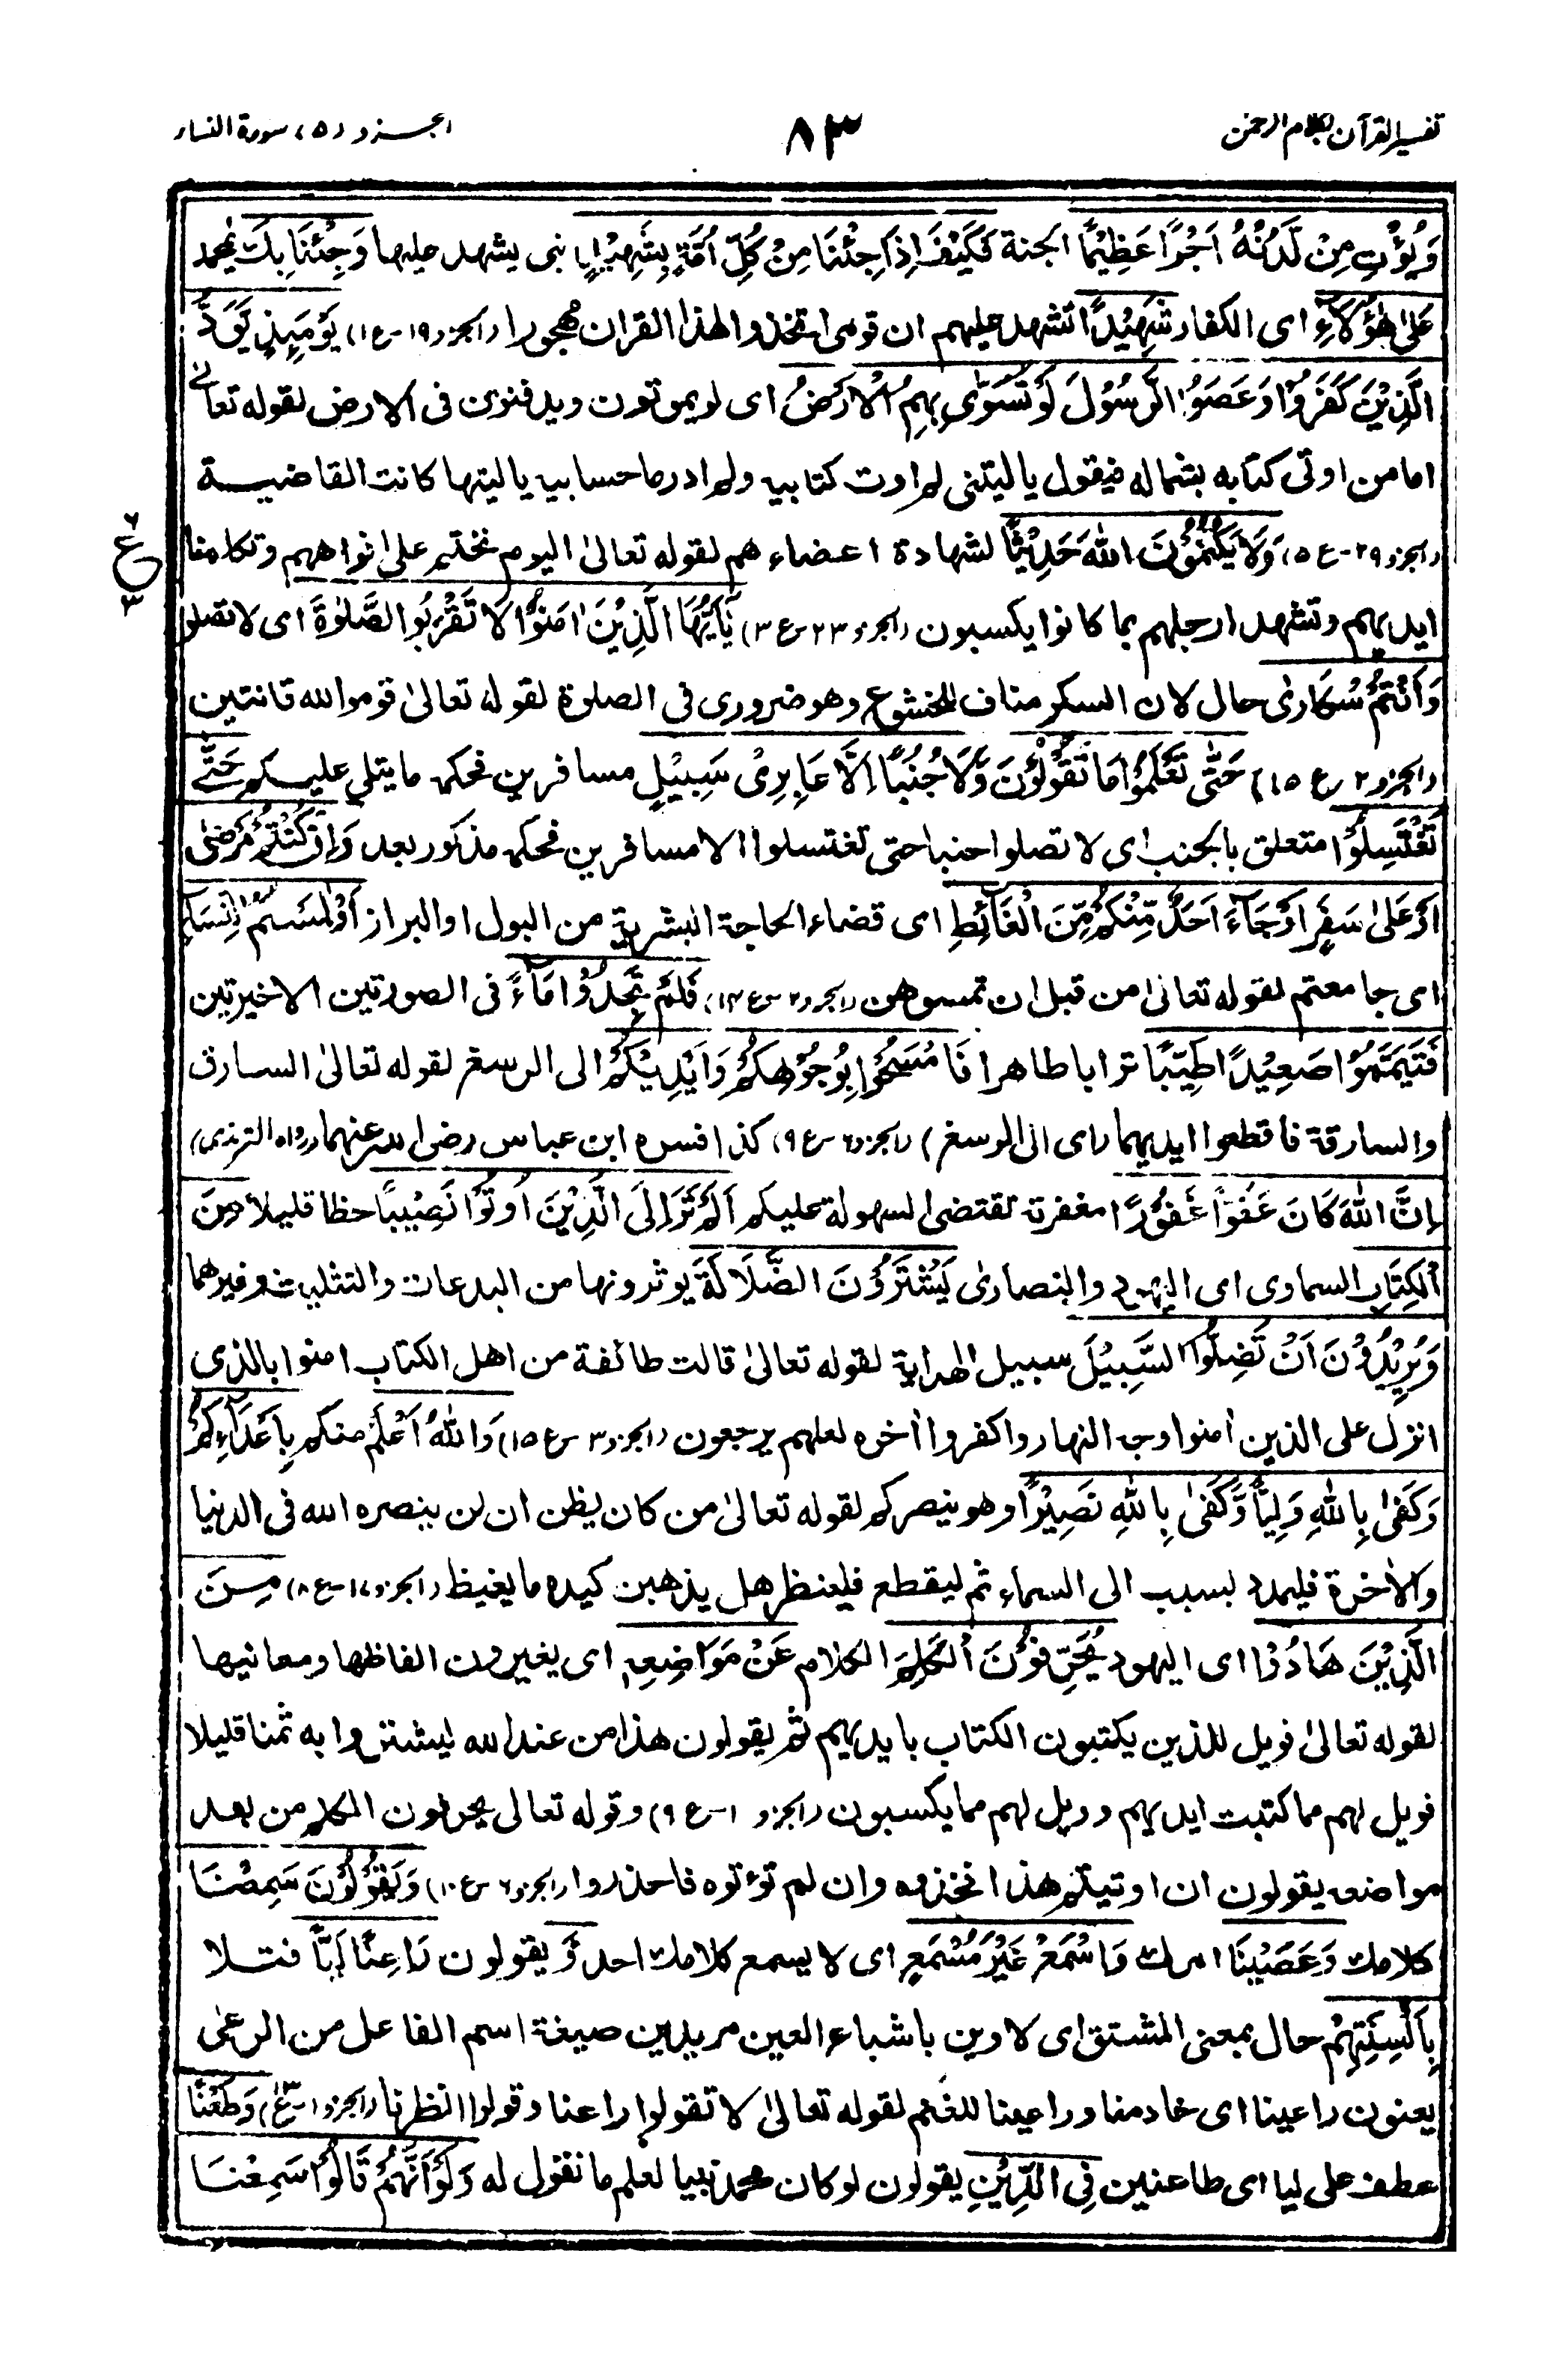 تفسير القرآن بكلام الرحمن
٨٣
الجزو (٥) سورة النساء
وَيُؤْتِ مِنْ لَّدُنْهُ اَجْرًا عَظِيْمًا الجنة فَكَيْفَ اِذَا جِئْنَا مِنْ كُلِّ اُمَّةٍ بِشَهِيْدٍ نبى يشهد عليها وَجِئْنَا بِكَ يٰمحمد
عَلٰى هٰؤُلَاءِ اى الكفار شَهِيْدًا تشهد عليهم ان قومى اتخذوا هذا القران مهجورا (الجزو ١٩-ع ١) يَوْمَئِذٍ يَّوَدُّ
الَّذِيْنَ كَفَرُوْا وَعَصَوُا الرَّسُوْلَ لَوْ تُسَوّٰى بِهِمُ الْاَرْضُ اى لو يموتون ويدفنون فى الارض لقوله تعالے
اما من اوتى كتابه بشماله فيقول ياليتنى لم اوت كتابيه ولم ادر ما حسابيه ياليتها كانت القاضية
(الجزو ٢٩-ع ٥) وَلَا يَكْتُمُوْنَ اللّٰهَ حَدِيْثًا لشهادة اعضاءهم لقوله تعالىٰ اليوم نختم علىٰ افواههم وتكلمنا
ايديهم وتشهد ارجلهم بما كانوا يكسبون (الجزو ٢٣-ع ٣) يٰٓاَيُّهَا الَّذِيْنَ اٰمَنُوْا لَا تَقْرَبُوا الصَّلٰوةَ اى لا تصلوا
وَاَنْتُمْ سُكَارٰى حال لان السكر مناف للخشوع وهو ضرورى فى الصلوة لقوله تعالىٰ قوموا لله قانتين
(الجزو ٢-ع ١٥) حَتّٰى تَعْلَمُوْا مَا تَقُوْلُوْنَ وَلَا جُنُبًا اِلَّا عَابِرِىْ سَبِيْلٍ مسافرين فحكمه ما يتلى عليكم حَتّٰے
تَغْتَسِلُوْا متعلق بالجنب اى لا تصلوا جنبا حتى تغتسلوا الا مسافرين فحكمه مذكور بعد وَاِنْ كُنْتُمْ مَّرْضٰى
اَوْ عَلٰى سَفَرٍ اَوْ جَآءَ اَحَدٌ مِّنْكُمْ مِّنَ الْغَآئِطِ اى قضاء الحاجة البشرية من البول او البراز اَوْ لٰمَسْتُمُ النِّسَآءَ
اى جامعتم لقوله تعالىٰ من قبل ان تمسوهن (الجزو ٢-ع ١٤) فَلَمْ تَجِدُوْا مَآءً فى الصورتين الاخيرتين
فَتَيَمَّمُوْا صَعِيْدًا طَيِّبًا ترابا طاهرا فَامْسَحُوْا بِوُجُوْهِكُمْ وَاَيْدِيْكُمْ الى الرسغ لقوله تعالىٰ السارق
والسارقة فاقطعوا ايديهما (اى الى الرسغ) (الجزو ٦-ع ٩) كذا فسره ابن عباس رضى الله عنهما (رواه الترمذى)
اِنَّ اللّٰهَ كَانَ عَفُوًّا غَفُوْرًا مغفرته تقتضى السهولة عليكم اَلَمْ تَرَ اِلَى الَّذِيْنَ اُوْتُوْا نَصِيْبًا حظا قليلا مِّنَ
الْكِتَابِ السماوى اى اليهود والنصارىٰ يَشْتَرُوْنَ الضَّلَالَةَ يوثرونها من البدعات والتثليث وغيرهما
وَيُرِيْدُوْنَ اَنْ تَضِلُّوا السَّبِيْلَ سبيل الهداية لقوله تعالىٰ قالت طائفة من اهل الكتاب امنوا بالذى
انزل على الذين اٰمنوا وجه النهار واكفروا اٰخره لعلهم يرجعون (الجزو ٣-ع ١٥) وَاللّٰهُ اَعْلَمُ منكم بِاَعْدَآءِكُمْ
وَكَفٰى بِاللّٰهِ وَلِيًّا وَّكَفٰى بِاللّٰهِ نَصِيْرًا وهو ينصركم لقوله تعالىٰ من كان يظن ان لن ينصره الله فى الدنيا
والاٰخرة فليمدد بسبب الى السماء ثم ليقطع فلينظر هل يذهبن كيده ما يغيظ (الجزو ١٧-ع ٨) مِنَ
الَّذِيْنَ هَادُوْا اى اليهود يُحَرِّفُوْنَ الْكَلِمَ الكلام عَنْ مَوَاضِعِهٖ اى يغيرون الفاظها ومعانيها
لقوله تعالىٰ فويل للذين يكتبون الكتاب بايديهم ثم يقولون هذا من عند الله ليشتروا به ثمنا قليلا
فويل لهم مما كتبت ايديهم وويل لهم مما يكسبون (الجزو ١-ع ٩) وقوله تعالى يحرفون الكلم من بعد
مواضعه يقولون ان اوتيتم هذا فخذوه وان لم تؤتوه فاحذروا (الجزو ٦-ع ١٠) وَيَقُوْلُوْنَ سَمِعْنَا
كلامك وَعَصَيْنَا امرك وَاسْمَعْ غَيْرَ مُسْمَعٍ اى لا يسمع كلامك احد وَّ يقولون رَاعِنَا لَيًّا فتلا
بِاَلْسِنَتِهِمْ حال بمعنى المشتق اى لاوين باشباع العين مريدين صيغة اسم الفاعل من الرعى
يعنون راعينا اى خادمنا وراعينا للغنم لقوله تعالىٰ لا تقولوا راعنا وقولوا انظرنا (الجزو ١-ع ١٣) وَطَعْنًا
عطف على ليا اى طاعنين فِى الدِّيْنِ يقولون لو كان محمد نبيا لعلم ما نقول له وَلَوْ اَنَّهُمْ قَالُوْا سَمِعْنَا
ع
٣